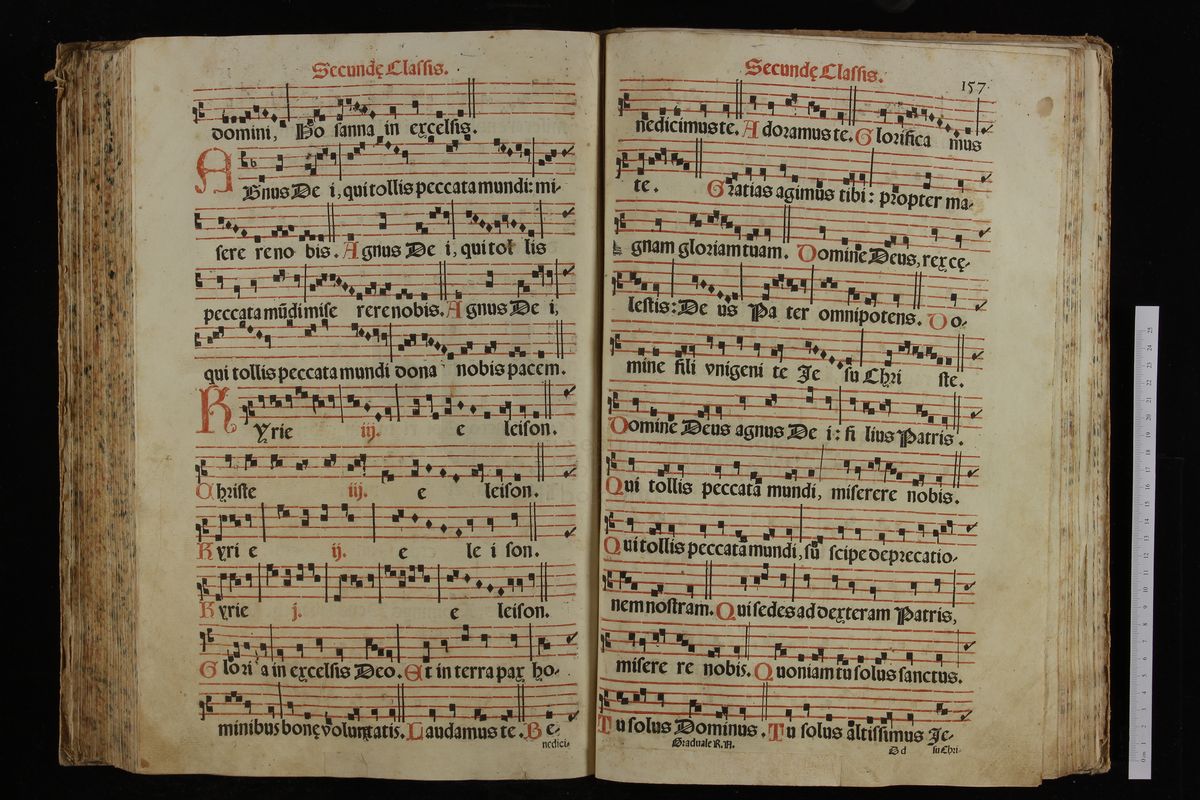 Secundę Classis.
domini, Ho sanna in excelsis.
AGnus De i, qui tollis peccata mundi: mi-
sere re no bis. Agnus De i, qui tol lis
peccata mūdi mise rere nobis. Agnus De i,
qui tollis peccata mundi dona nobis pacem.
KYrie iij. e leison.
Christe iij. e leison.
Kyri e ij. e le i son.
Kyrie j. e leison.
Glori a in excelsis Deo. Et in terra pax ho-
minibus bonę voluntatis. Laudamus te. Be-
nedici-
Secundę Classis.
157
nedicimus te. Adoramus te. Glorifica mus
te. Gratias agimus tibi: propter ma-
gnam gloriam tuam. Domine Deus, rex cę-
lestis: De us Pa ter omnipotens. Do-
mine fili vnigeni te Je su Chri ste.
Domine Deus agnus De i: fi lius Patris.
Qui tollis peccata mundi, miserere nobis.
Qui tollis peccata mundi, su scipe deprecatio-
nem nostram. Qui sedes ad dexteram Patris,
misere re nobis. Quoniam tu solus sanctus.
Tu solus Dominus. Tu solus altissimus Je-
Graduale R. A. Dd su Chri-